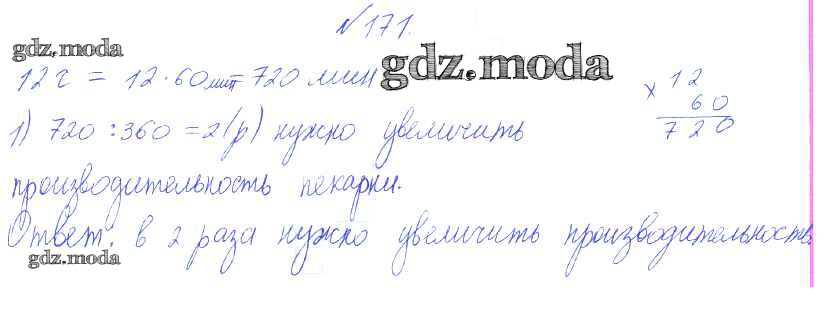 №171.
gdz.moda
12 г = 12·60мин=720 мин
gdz.moda
× 12
60
720
1) 720:360=2(р) нужно увеличить
производительность пекарни.
Ответ: в 2 раза нужно увеличить производительность.
gdz.moda